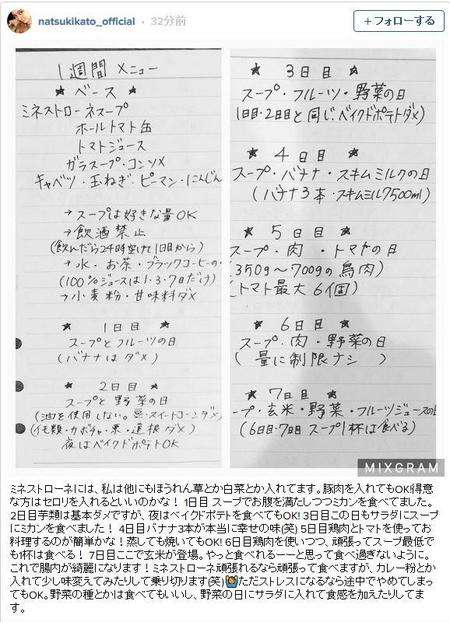 natsukikato_official
32分前
+フォローする
1週間 メニュー
★ ベース ★
ミネストローネスープ
ホールトマト缶
トマトジュース
ガラスープ・コンソメ
キャベツ・玉ねぎ・ピーマン・にんじん
→スープは好きな量OK
→飲酒禁止
(飲んだら24時空けて1日目から)
→水・お茶・ブラックコーヒーの
(100%ジュースは1・3・7日だけ)
→小麦粉・甘味料ダメ
★ 1日目 ★
スープとフルーツの日
(バナナはダメ)
★ 2日目 ★
スープと野菜の日
(油を使用しない。豆・スイートコーンダメ)
(イモ類・カボチャ・栗・蓮根ダメ)
夜はベイクドポテトOK
★ 3日目 ★
スープ・フルーツ・野菜の日
(1日目・2日目と同じ ベイクドポテトダメ)
★ 4日目 ★
スープ・バナナ・スキムミルクの日
(バナナ3本・スキムミルク500ml)
★ 5日目 ★
スープ・肉・トマトの日
350g〜700gの鳥肉)
(トマト最大6個)
★ 6日目 ★
スープ・肉・野菜の日
(量に制限ナシ)
★ 7日目 ★
ープ・玄米・野菜・フルーツジュースの日
(6日目・7日目 スープ1杯は食べる)
MIXGRAM
ミネストローネには、私は他にもほうれん草とか白菜とか入れてます。豚肉を入れてもOK!得意
な方はセロリを入れるといいのかな! 1日目 スープでお腹を満たしつつミカンを食べてました。
2日目芋類は基本ダメですが、夜はベイクドポテトを食べてもOK! 3日目この日もサラダにスープ
にミカンを食べました! 4日目バナナ3本が本当に幸せの味(笑) 5日目鶏肉とトマトを使ってお
料理するのが簡単かな! 蒸しても焼いてもOK! 6日目鶏肉を使いつつ、頑張ってスープ最低で
も1杯は食べる! 7日目ここで玄米が登場。やっと食べれるーーと思って食べ過ぎないように。
これで腸内が綺麗になります! ミネストローネ頑張れるなら頑張って食べますが、カレー粉とか
入れて少し味変えてみたりして乗り切ります(笑)🙆ただストレスになるなら途中でやめてしまっ
てもOK。野菜の種とかは食べてもいいし、野菜の日にサラダに入れて食感を加えたりしてま
す。